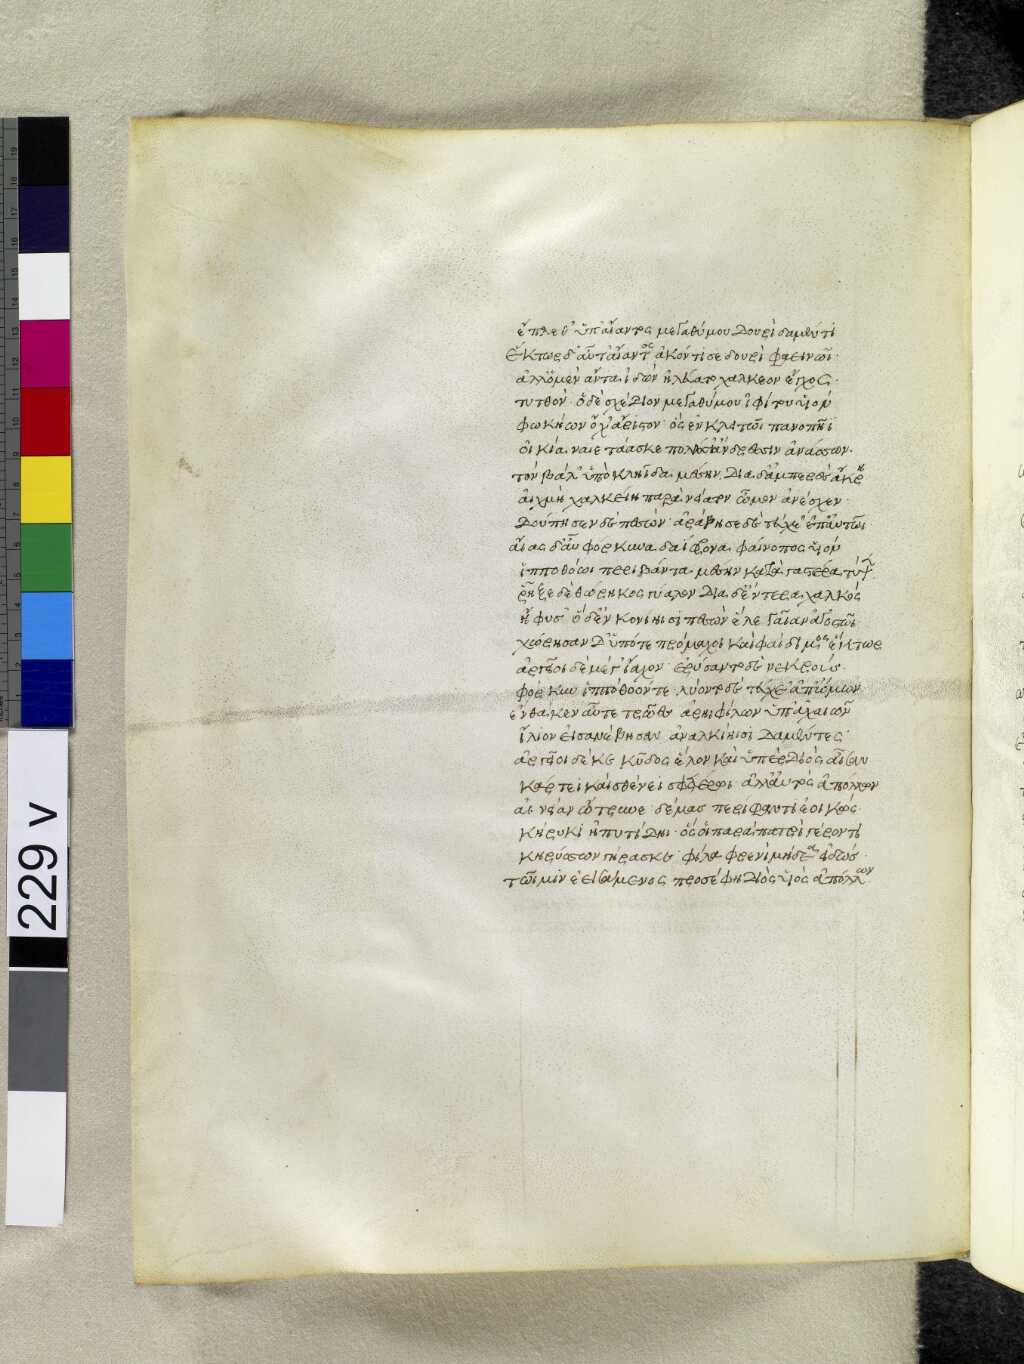 ἔπλεθ' ὑπ' αἴαντος μεγαθύμου δουρὶ δαμέντι
ἕκτωρ δ' αὖτ' αἴαντος ἀκόντισε δουρὶ φαεινῶι·
ἀλλ' ὃ μὲν ἄντα ἰδὼν ἠλεύατο χάλκεον ἔγχος·
τυτθόν· ὃ δὲ σχεδίον μεγαθύμου ἰφίτου υἱὸν
φωκήων ὄχ' ἄριστον· ὃς ἐν κλειτῶι πανοπῆϊ
οἰκία ναιετάασκε πολέσσ' ἄνδρεσσιν ἀνάσσων·
τὸν βάλ' ὑπὸ κληῖδα μέσην· διὰ δ' ἀμπερὲς ἄκρη
αἰχμὴ χαλκείη παρὰ νείατον ὦμον ἀνέσχεν·
δούπησεν δὲ πεσών· ἀράβησε δὲ τεύχε' ἐπ' αὐτῶι
αἴας δ' αὖ φόρκυνα δαΐφρονα φαίνοπος υἱὸν
ἱπποθόωι περιβάντα μέσην κατὰ γαστέρα τύψεν
ῥῆξε δὲ θώρηκος γύαλον διὰ δ' ἔντερα χαλκὸς
ἤφυσ' ὃ δ' ἐν κονίηισι πεσὼν ἕλε γαῖαν ἀγοστῶι
χώρησαν δ' ὑπό τε πρόμαχοι καὶ φαίδιμος ἕκτωρ
ἀργεῖοι δὲ μέγ' ἴαχον· ἐρύσαντο δὲ νεκροὺς
φόρκυν ἱππόθοόν τε λύοντο δὲ τεύχε' ἀπ' ὤμων
ἔνθά κεν αὖτε τρῶες ἀρηϊφίλων ὑπ' ἀχαιῶν
ἴλιον εἰσανέβησαν ἀναλκίηισι δαμέντες·
ἀργεῖοι δέ κε κῦδος ἕλον καὶ ὑπὲρ διὸς αἶσαν
κάρτεϊ καὶ σθένεϊ σφετέρωι· ἀλλ' αὐτὸς ἀπόλλων
αἰνείαν ὤτρυνε· δέμας περίφαντι ἐοικὼς·
κήρυκι ἠπυτίδηι· ὅς οἱ παρὰ πατρὶ γέροντι
κηρύσσων γήρασκε· φίλα φρεσὶ μήδεα εἰδώς·
τῶι μιν ἐεισάμενος προσέφη διὸς υἱὸς ἀπόλλων
229 v